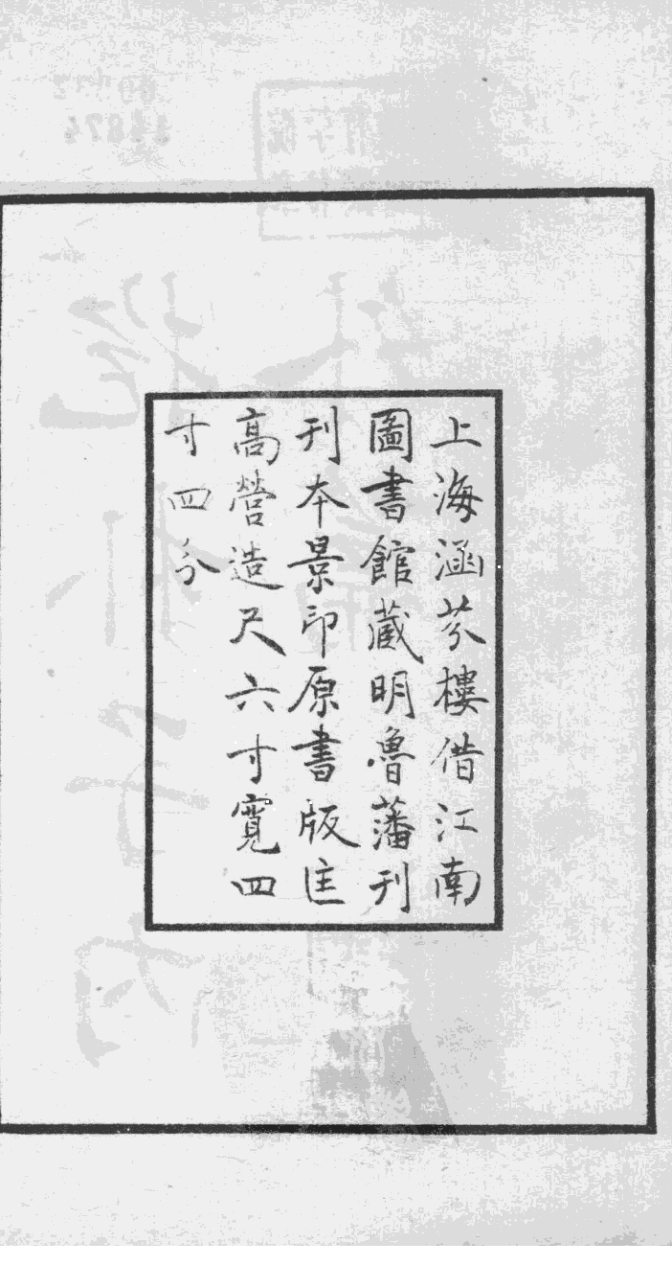 上海涵芬樓借江南
圖書館藏明魯藩刊
刊本景印原書版匡
高營造尺六寸寬四
寸四分